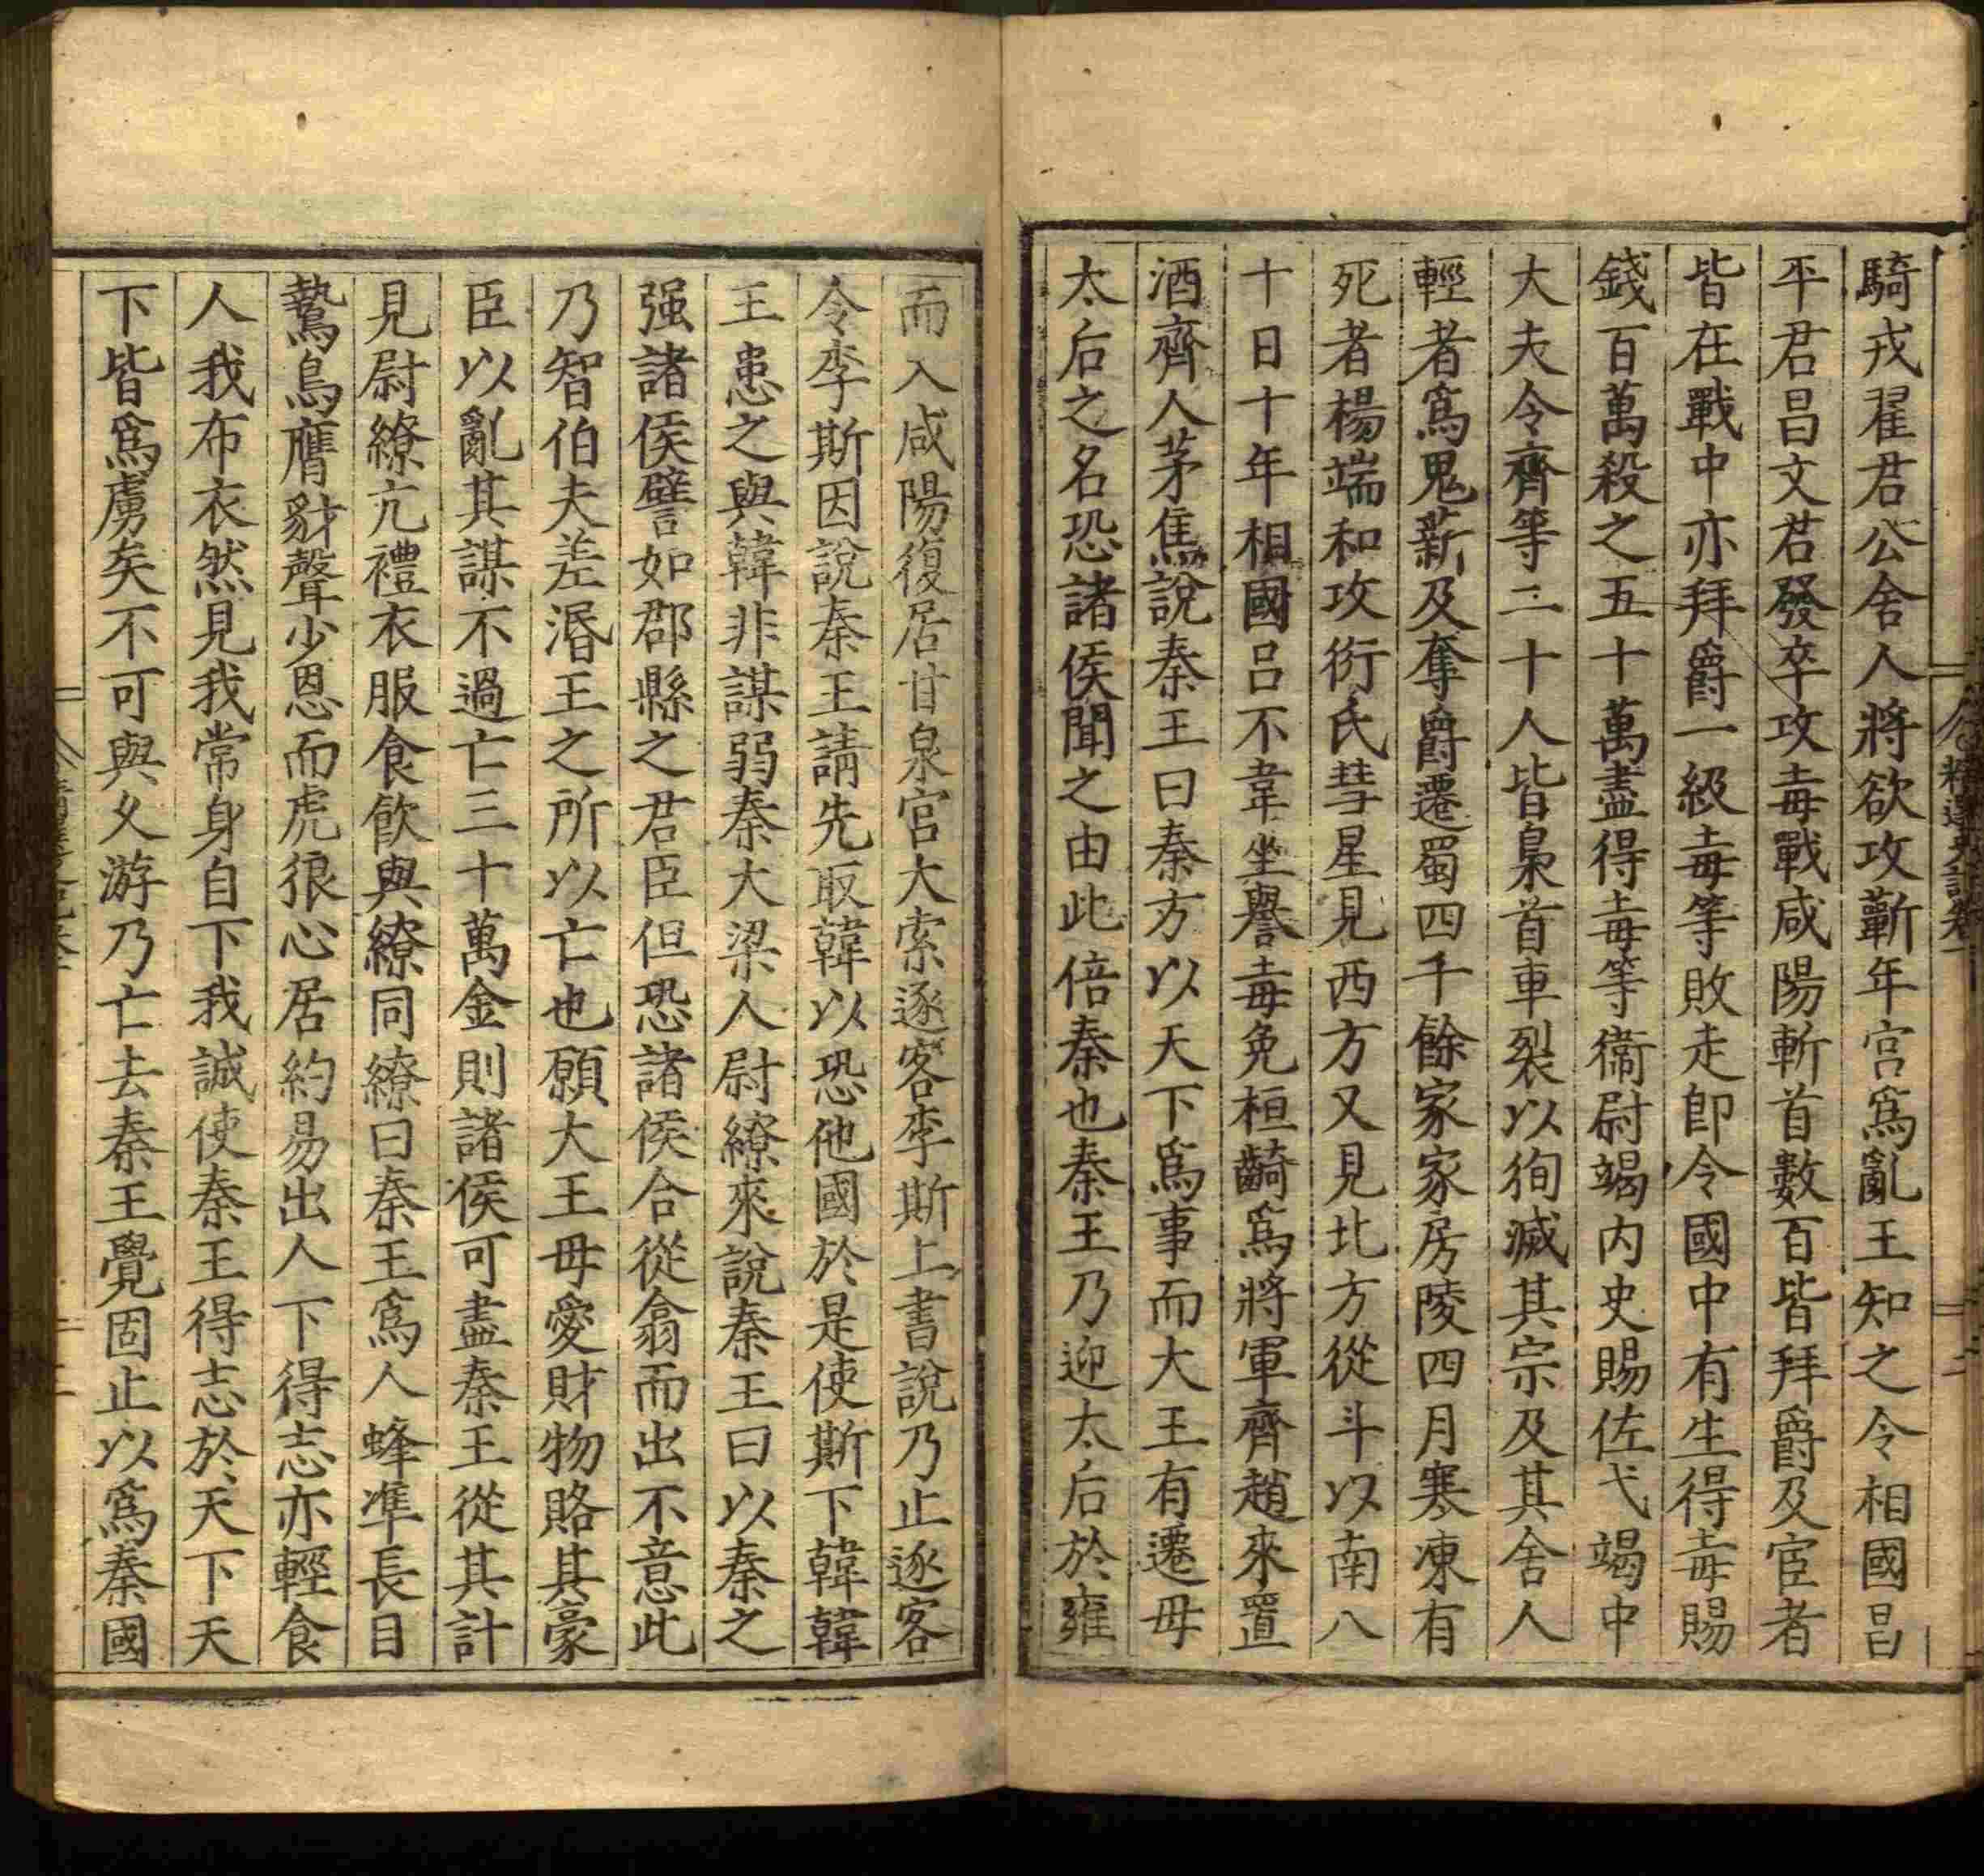 騎戎翟君公舍人將欲攻蘄年宮爲亂王知之令相國昌
平君昌文君發卒攻毐戰咸陽斬首數百皆拜爵及宦者
皆在戰中亦拜爵一級毐等敗走卽令國中有生得毐賜
錢百萬殺之五十萬盡得毐等衞尉竭内史賜佐弋竭中
大夫令齊等二十人皆梟首車裂以徇滅其宗及其舍人
輕者爲鬼薪及奪爵遷蜀四千餘家家房陵四月寒凍有
死者楊端和攻衍氏彗星見西方又見北方從斗以南八
十日十年相國呂不韋坐譽毐免桓齮爲將軍齊趙來置
酒齊人茅焦說秦王曰秦方以天下爲事而大王有遷毋
太后之名恐諸侯聞之由此倍秦也秦王乃迎太后於雍
而入咸陽復居甘泉宮大索逐客李斯上書說乃止逐客
令李斯因說秦王請先取韓以恐他國於是使斯下韓韓
王患之與韓非謀弱秦大梁人尉繚來說秦王曰以秦之
强諸侯譬如郡縣之君臣但恐諸侯合從翕而出不意此
乃智伯夫差湣王之所以亡也願大王毋愛財物賂其豪
臣以亂其謀不過亡三十萬金則諸侯可盡秦王從其計
見尉繚亢禮衣服食飮與繚同繚曰秦王爲人蜂準長目
鷙鳥膺豺聲少恩而虎很心居約易出人下得志亦輕食
人我布衣然見我常身自下我誠使秦王得志於天下天
下皆爲虜矣不可與久游乃亡去秦王覺固止以爲秦國